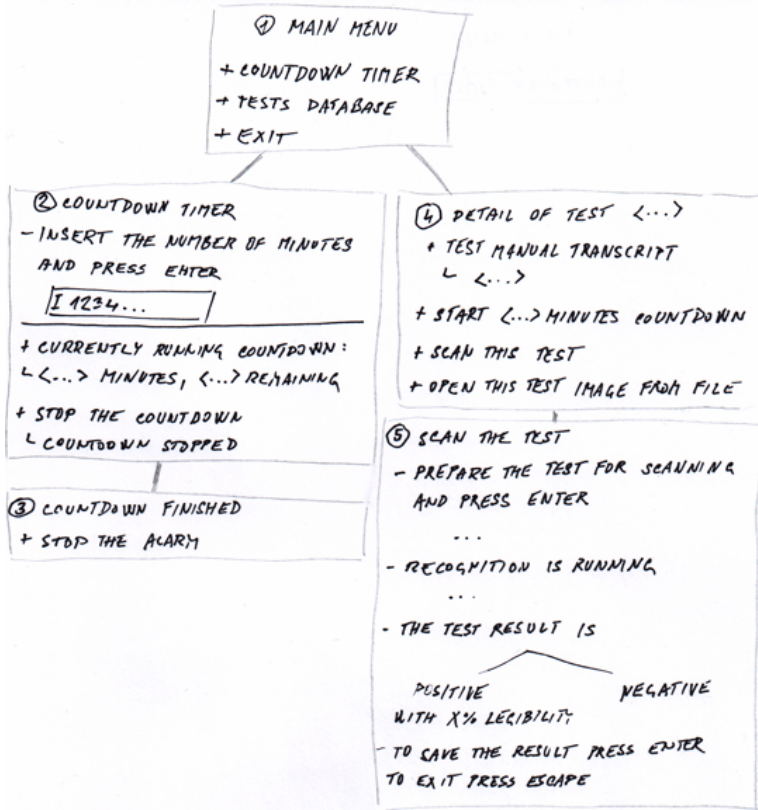 ① MAIN MENU
+ COUNTDOWN TIMER
+ TESTS DATABASE
+ EXIT
② COUNTDOWN TIMER
- INSERT THE NUMBER OF MINUTES
AND PRESS ENTER
I 1234...
+ CURRENTLY RUNNING COUNTDOWN:
└ <...> MINUTES, <...> REMAINING
+ STOP THE COUNTDOWN
└ COUNTDOWN STOPPED
③ COUNTDOWN FINISHED
+ STOP THE ALARM
④ DETAIL OF TEST <...>
+ TEST MANUAL TRANSCRIPT
└ <...>
+ START <...> MINUTES COUNTDOWN
+ SCAN THIS TEST
+ OPEN THIS TEST IMAGE FROM FILE
⑤ SCAN THE TEST
- PREPARE THE TEST FOR SCANNING
AND PRESS ENTER
...
- RECOGNITION IS RUNNING
...
- THE TEST RESULT IS
POSITIVE NEGATIVE
WITH X% LEGIBILITY
- TO SAVE THE RESULT PRESS ENTER
TO EXIT PRESS ESCAPE